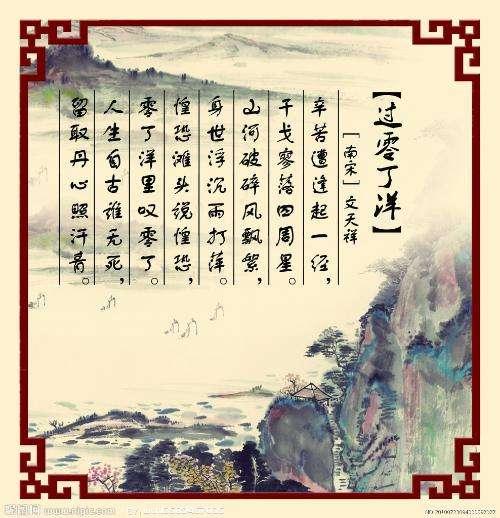 【过零丁洋】
[南宋] 文天祥
辛苦遭逢起一经，
干戈寥落四周星。
山河破碎风飘絮，
身世浮沉雨打萍。
惶恐滩头说惶恐，
零丁洋里叹零丁。
人生自古谁无死，
留取丹心照汗青。
昵图网
www.nipic.com